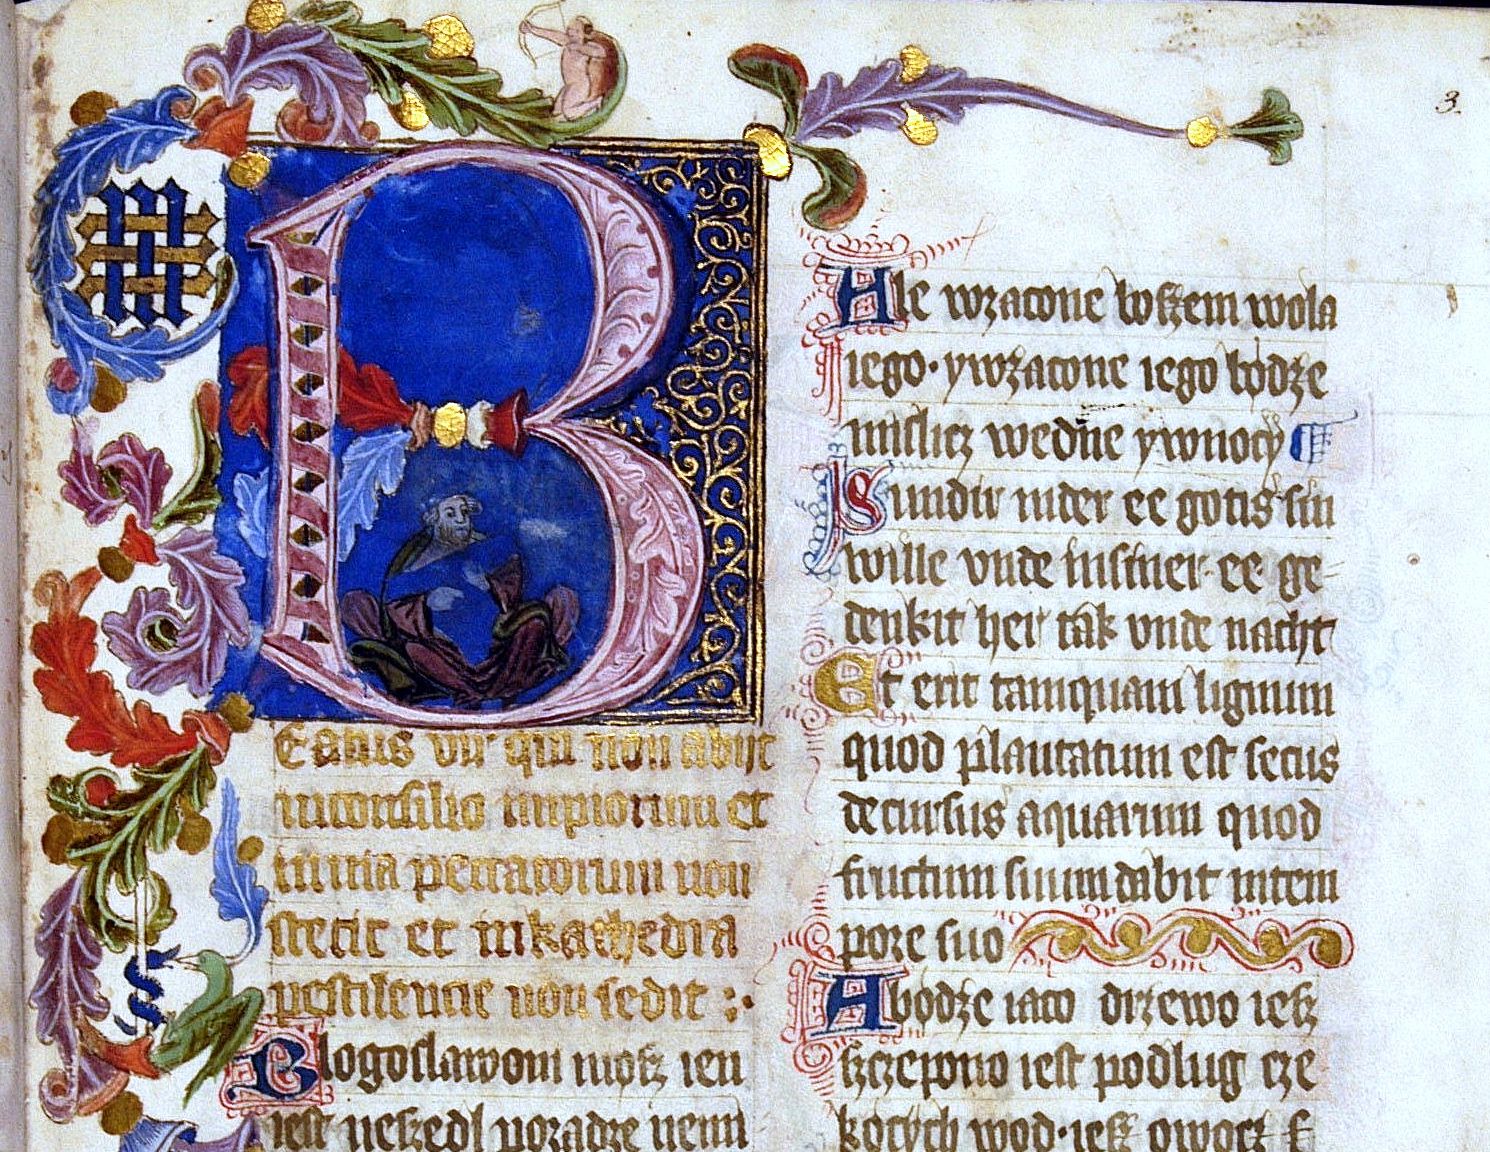 B
Eatus vir qui non abijt
inconsilio impiorum et
inuia peccatorum non
stetit et inkathedra
pestilencie non sedit :·
Blogoslawoni mosz ien
iest neszedl poradze nemi
3.
Ale wzacone boszem wola
iego · ywzacone iego bodze
mislicz wedne ywnocy
Sundir inder ee gotis sin
wille vnde insiner ee ge-
denkit her tak vnde nacht
Et erit tamquam lignum
quod plantatum est secus
decursus aquarum quod
fructum suum dabit intem
pore suo
Abodze iaco drzewo iesz
szczepono iest podlug cze
kocych wod · iesz owocz s